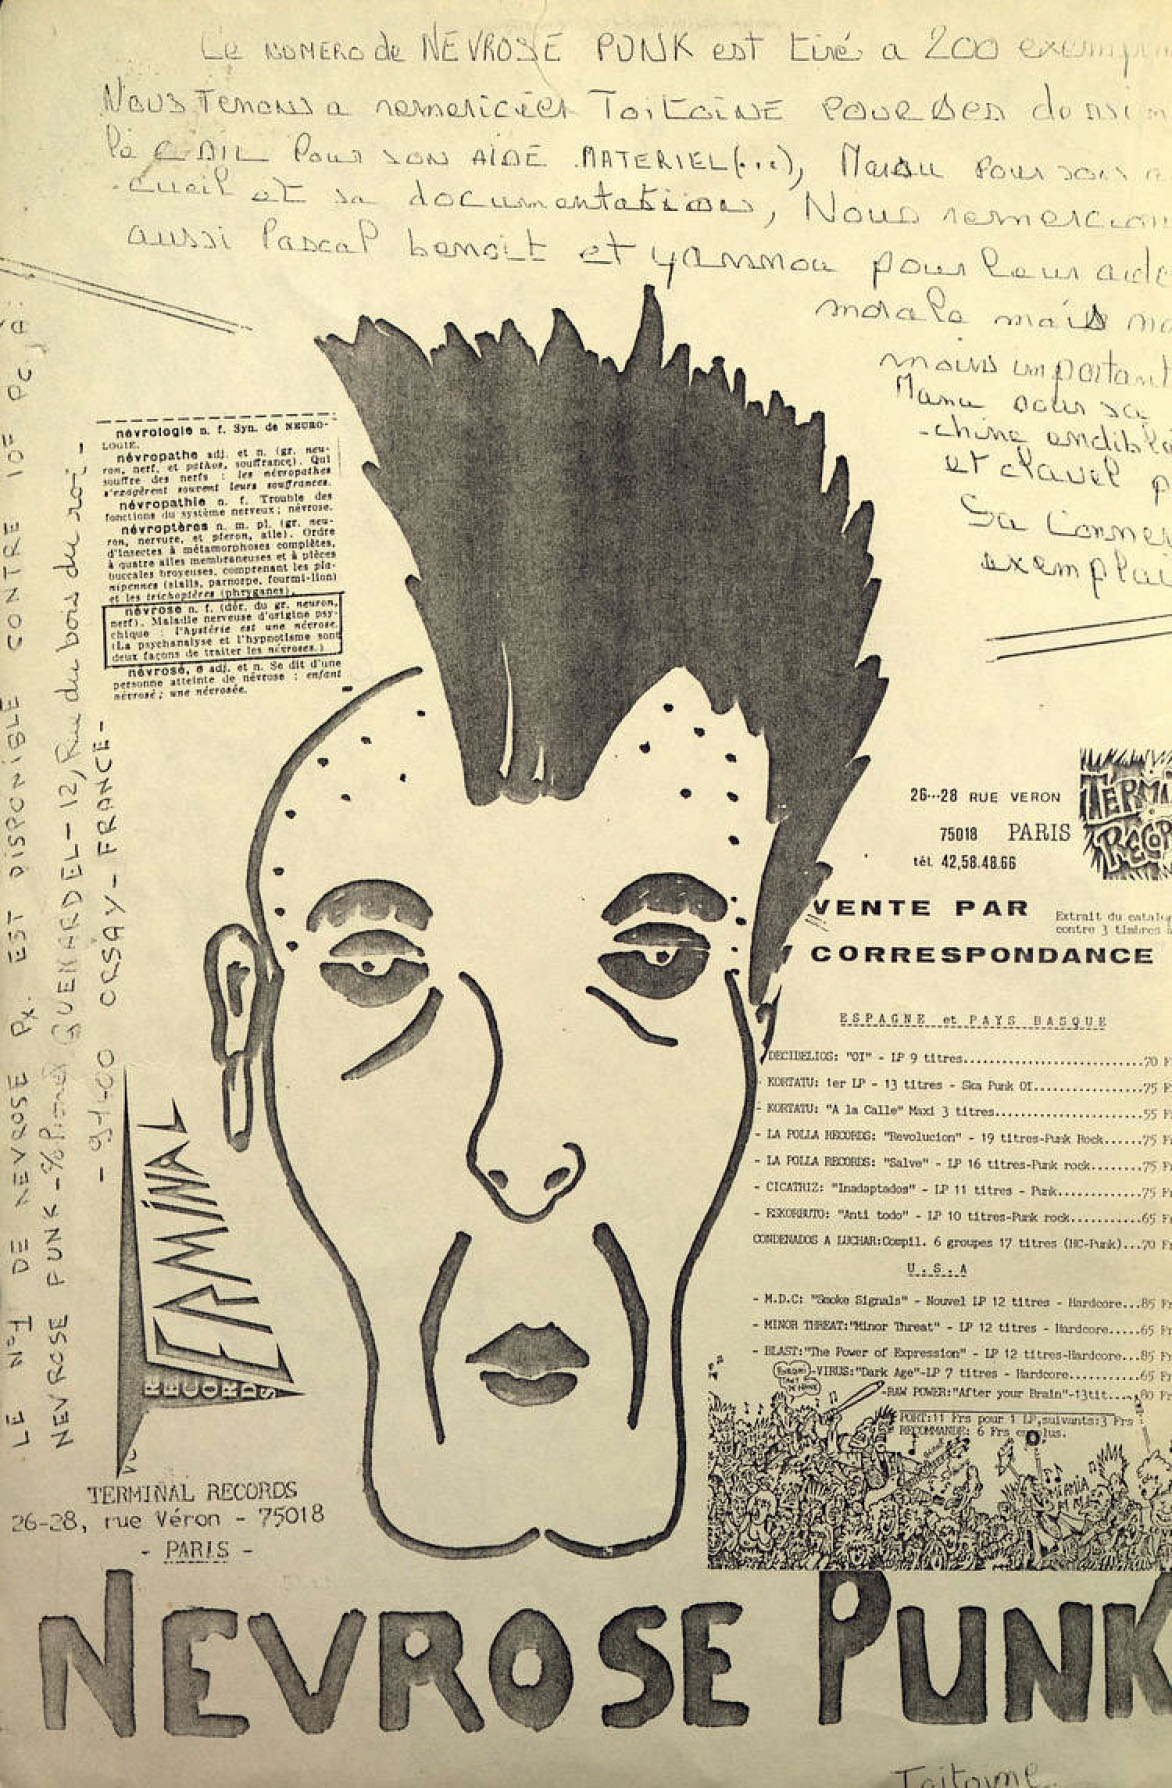 Ce NUMERO de NEVROSE PUNK est tiré a 200
Nous Tenons a remericier Toitoine POUR Ses
POUR SON AIDE MATERIEL(...), Manu POUR SON
cueil et sa documentation, Nous
aussi Pascal benoit et yannou pour leur aide
morale mais
moins important
Manu pour sa
et clavel
Sa
LE N°1 DE NEVROSE Px. EST DISPONIBLE CONTRE 10F PC, A:
NEVROSE PUNK - % GUENARDEL - 12, Rue du bois du roi -
- 91400 ORSAY - FRANCE -
névrologie n. f. Syn. de NEURO-
LOGIE.
névropathe adj. et n. (gr. neu-
ron, nerf, et pathos, souffrance). Qui
souffre des nerfs : les névropathes
s'exagèrent souvent leurs souffrances.
névropathie n. f. Trouble des
fonctions du système nerveux; névrose.
névroptères n. m. pl. (gr. neu-
ron, nervure, et pteron, aile). Ordre
d'insectes à métamorphoses complètes,
à quatre ailes membraneuses et à pièces
buccales broyeuses, comprenant les pla-
nipennes (sialis, panorpe, fourmi-lion)
et les trichoptères (phryganes).
névrose n. f. (dér. du gr. neuron,
nerf). Maladie nerveuse d'origine psy-
chique : l'hystérie est une névrose.
(La psychanalyse et l'hypnotisme sont
deux façons de traiter les névroses.)
névrosé, e adj. et n. Se dit d'une
personne atteinte de névrose : enfant
névrosé; une névrosée.
26--28 RUE VERON
75018 PARIS
tél. 42,58.48.66
VENTE PAR
CORRESPONDANCE
Extrait du
contre 3 timbres
ESPAGNE et PAYS BASQUE
DECIBELIOS: "OI" - LP 9 titres......................70 F
- KORTATU: 1er LP - 13 titres - Ska Punk OI..............75 F
- KORTATU: "A la Calle" Maxi 3 titres...................55 F
- LA POLLA RECORDS: "Revolucion" - 19 titres-Punk Rock.....75 F
- LA POLLA RECORDS: "Salve" - LP 16 titres-Punk rock.......75 F
- CICATRIZ: "Inadaptados" - LP 11 titres - Punk............75 F
- RSKORBUTO: "Anti todo" - LP 10 titres-Punk rock..........65 F
CONDENADOS A LUCHAR:Compil. 6 groupes 17 titres (HC-Punk)...70 Fr
U.S.A
- M.D.C: "Smoke Signals" - Nouvel LP 12 titres - Hardcore...85 Fr
- MINOR THREAT:"Minor Threat" - LP 12 titres - Hardcore.....65 Fr
- BLAST:"The Power of Expression" - LP 12 titres-Hardcore...85 F
-VIRUS:"Dark Age"-LP 7 titres - Hardcore..........65 F
-RAW POWER:"After your Brain"-13tit.....80 F
PORT:11 Frs pour 1 LP,suivants:3 Frs
RECOMMANDE: 6 Frs en plus.
TERMINAL
RECORDS
TERMINAL RECORDS
26-28, rue Véron - 75018
- PARIS -
NEVROSE PUNK
Toitoine